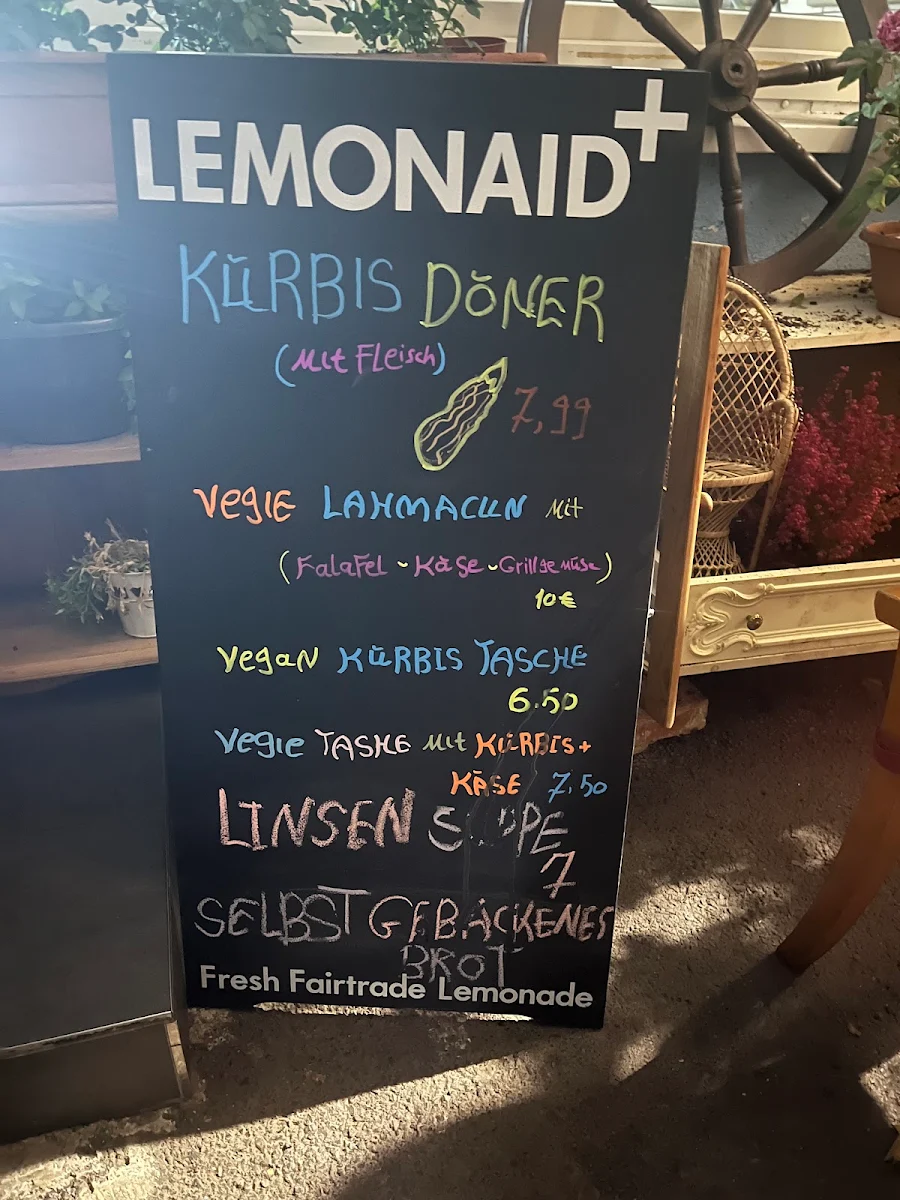 LEMONAID+
KÜRBIS DÖNER
(Mit Fleisch)
7,99
Vegie LAHMACUN Mit
(Falafel - Käse - Grillgemüse)
10€
Vegan KÜRBIS TASCHE
6.50
Vegie TASHE Mit KÜRBIS+
KÄSE 7,50
LINSEN SUPPE
7
SELBST GEBACKENES
BROT
Fresh Fairtrade Lemonade